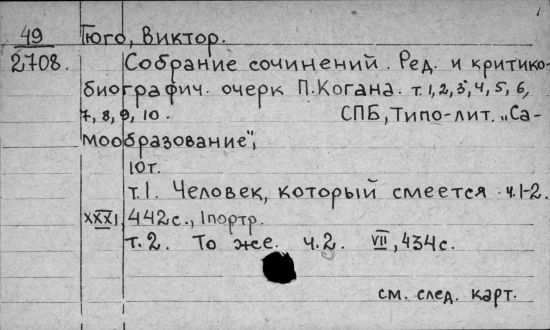 49 Гюго, Виктор.
2708. Собрание сочинений. Ред. и критико-
биографич. очерк П.Когана. т. 1, 2, 3, 4, 5, 6,
7, 8, 9, 10. СПБ, Типо-лит. „Са-
мообразование",
10т.
т.1. Человек, который смеется ч.1-2.
XXXI, 442с., 1портр.
т.2. То же. ч.2. VII, 434с.
см. след. карт.